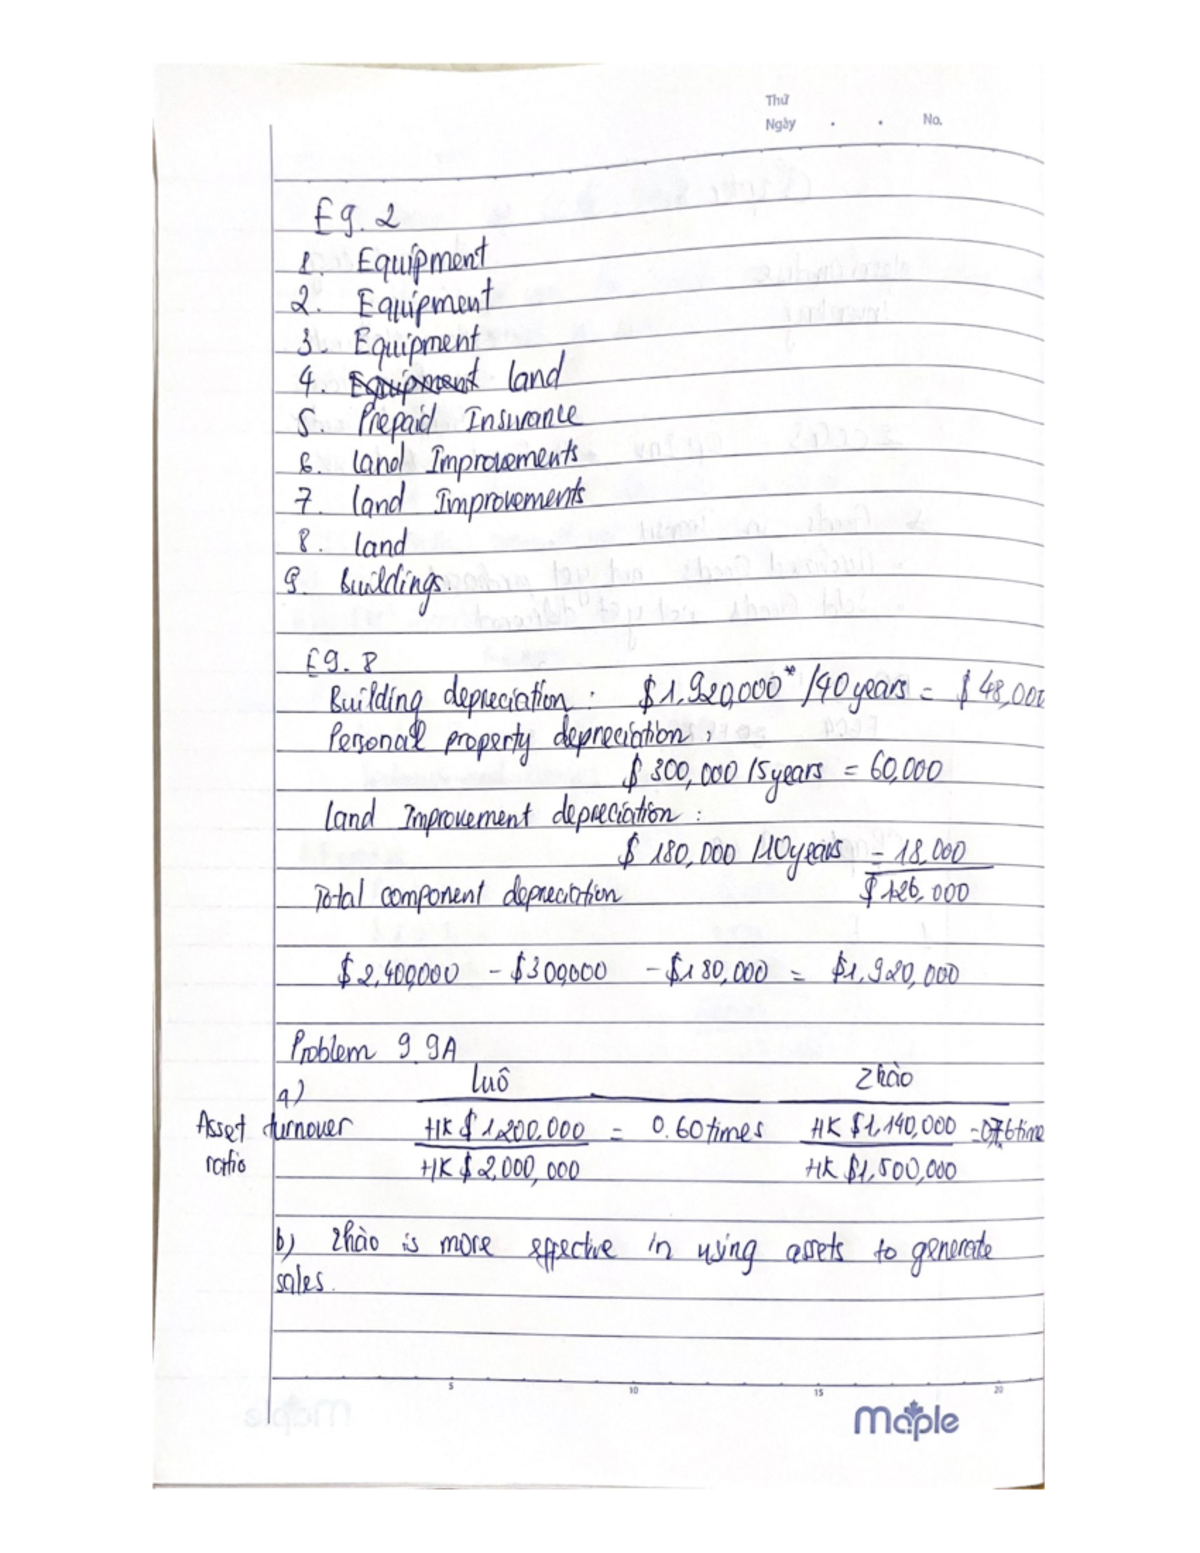 Thứ
Ngày . . No.
Eg. 2
1. Equipment
2. Equipment
3. Equipment
4. Equipment land
5. Prepaid Insurance
6. land Improvements
7. land Improvements
8. land
9. buildings.
Eg. 8
Building depreciation : $1,920,000* /40 years = $48,000
Personal property depreciation :
$300,000 /5 years = 60,000
Land Improvement depreciation :
$180,000 /10 years = 18,000
Total component depreciation $126,000
$2,400,000 - $300,000 - $180,000 = $1,920,000
Problem 9.9A
a) Luô Zhào
Asset turnover ratio HK $1,200,000 / HK $2,000,000 = 0.60 times HK $1,140,000 / HK $1,500,000 = 0.76 time
b) Zhào is more effective in using assets to generate
sales.
5 10 15 20
Maple